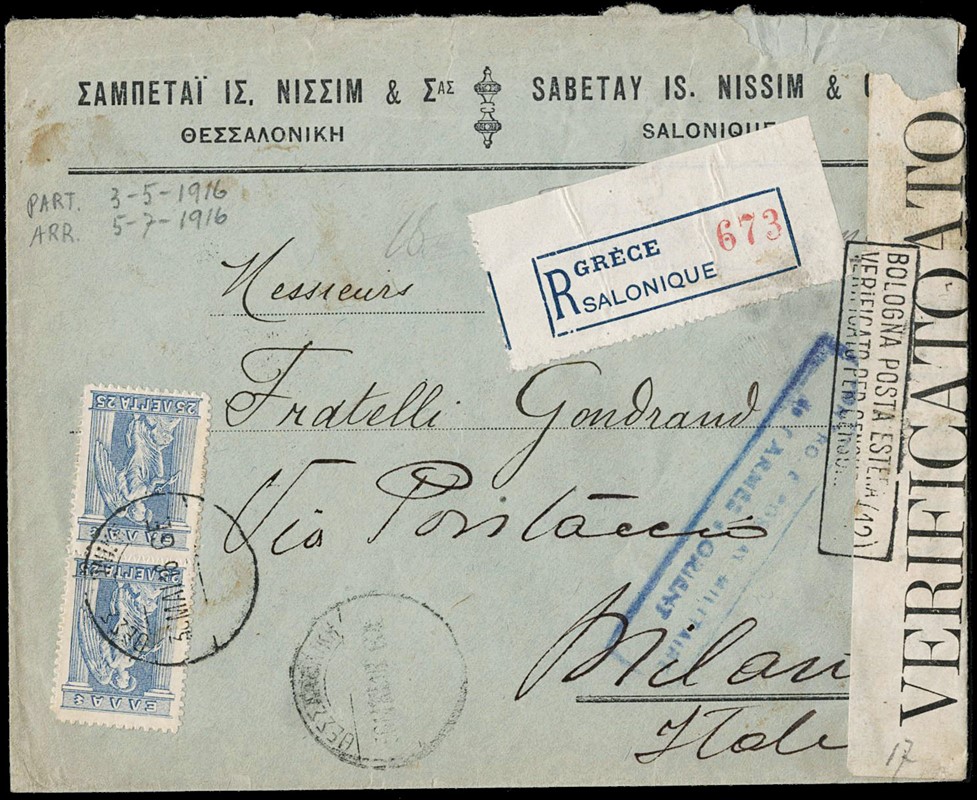 ΣΑΜΠΕΤΑΪ ΙΣ. ΝΙΣΣΙΜ & ΣΑΣ
ΘΕΣΣΑΛΟΝΙΚΗ
SABETAY IS. NISSIM &
SALONIQUE
PART. 3-5-1916
ARR. 5-7-1916
R
GRÈCE
SALONIQUE
673
Messieurs
Fratelli Gondrand
Via Pontaccio
Milan
BOLOGNA POSTA ESTERA (12)
VERIFICATO PER CENSURA
VERIFICATO
ATO
ARMÉE D'ORIENT
25 ΛΕΠΤΑ 25
ΕΛΛΑΣ
25 ΛΕΠΤΑ 25
ΕΛΛΑΣ
ΘΕΣΣΑΛΟΝΙΚΗ
17